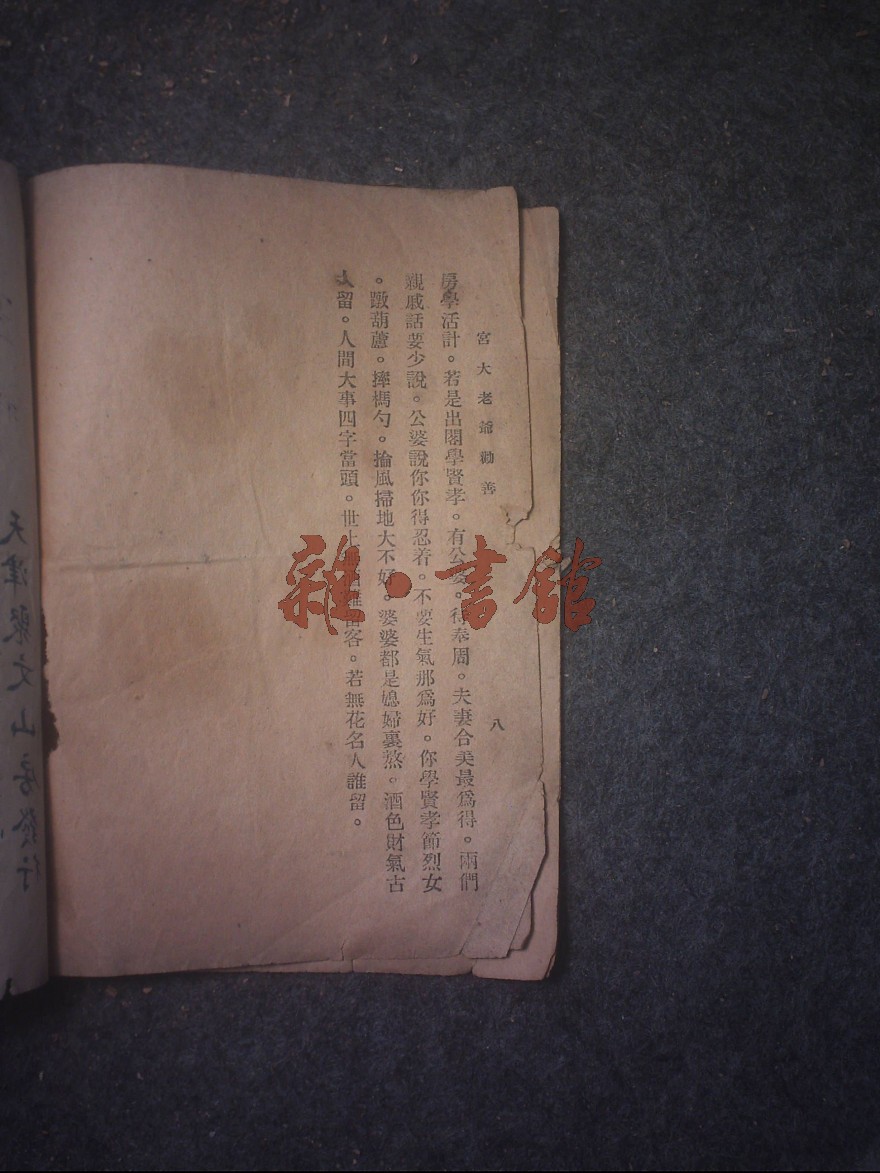 宮大老爺勸善
八
房學活計。若是出閣學賢孝。有公婆。得奉周。夫妻合美最爲得。兩們
親戚話要少說。公婆說你你得忍着。不要生氣那爲好。你學賢孝節烈女
。蹾葫蘆。摔榪勺。掄風掃地大不好。婆婆都是媳婦裏熬。酒色財氣古
人留。人間大事四字當頭。世上難留客。若無花名人誰留。
雜·書館
天津聚文山房發行